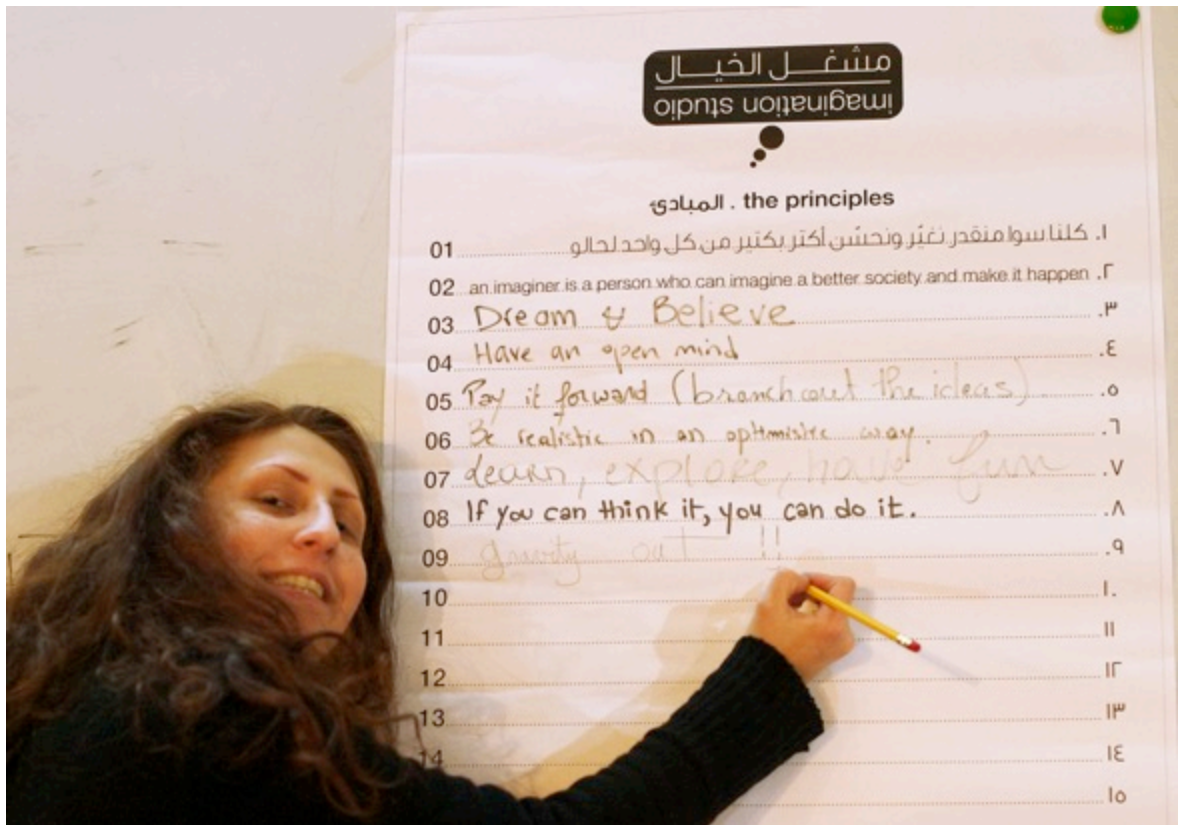 مشغل الخيال
imagination studio
المبادئ . the principles
01 كلنا سوا منقدر نغيّر ونحسّن أكتر بكتير من كل واحد لحالو .١
02 an imaginer is a person who can imagine a better society and make it happen .٢
03 Dream & Believe .٣
04 Have an open mind .٤
05 Pay it forward (branch out the ideas) .٥
06 Be realistic in an optimistic way. .٦
07 Learn, explore, have fun .٧
08 If you can think it, you can do it. .٨
09 gravity out !! .٩
10 .١٠
11 ١١
12 ١٢
13 ١٣
14 ١٤
١٥